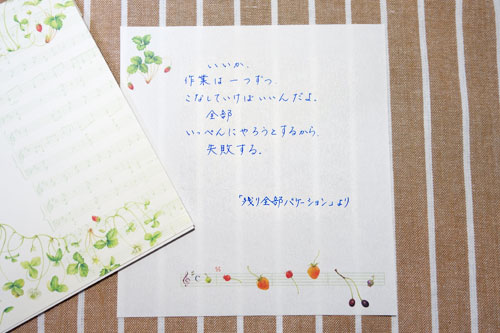 いいか、
作業は一つずつ、
こなしていけばいいんだよ。
全部
いっぺんにやろうとするから、
失敗する。
「残り全部バケーション」より